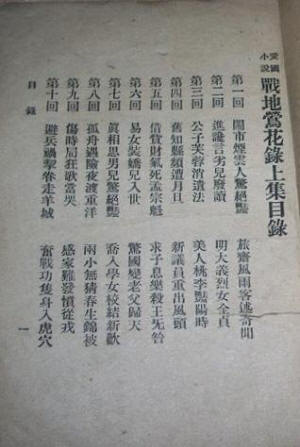 愛國小說
戰地鶯花錄上集目錄
第一回 鬧市煙雲人驚絕豔 旅齋風雨客述奇聞
第二回 進讒言劣兒廢讀 明大義烈女全貞
第三回 公子芙蓉消遣法 美人桃李豔陽時
第四回 舊知縣頻遭月旦 新議員重出風頭
第五回 借貲財氣死孟宗魁 求子息樂殺王旡咎
第六回 易女裝嬌兒入世 驚國變老父歸天
第七回 眞相思男兒驚絕豔 喬入學女校結新歡
第八回 孤舟遇險夜渡重洋 兩小無猜春生錦被
第九回 傷時局狂歌當哭 感家難發憤從戎
第十回 避兵禍挈眷走羊城 奮戰功隻身入虎穴
目錄 一